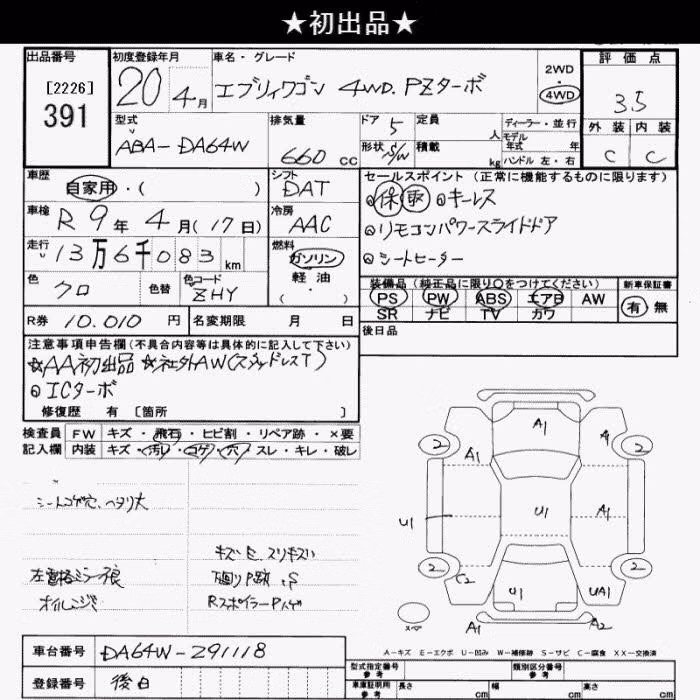 ★初出品★
出品番号
[2226]
391
初度登録年月
20年 4月
車名・グレード
エブリィワゴン 4WD. PZターボ
2WD・4WD
評価点
3.5
外装 内装
C C
型式
ABA-DA64W
排気量
660 CC
ドア 5
形状 S/W
定員 人
積載 kg
ディーラー・並行
モデル年式 年
ハンドル 左・右
車歴
自家用・( )
シフト
DAT
車検
R 9年 4月(17日)
冷房
AAC
走行
13万6千083 km
燃料
ガソリン
軽油
・( )
色
クロ
色替
色コード
ZHY
セールスポイント (正常に機能するものに限ります)
◎保 ◎キーレス
◎リモコンパワースライドドア
◎シートヒーター
装備品 (純正品に限り○をつけてください)
PS PW ABS エアB AW
SR ナビ TV カワ
新車保証書
有 無
R券 10.010 円
名変期限 月 日
後日品
注意事項申告欄(不具合内容等は具体的に記入して下さい)
☆AA初出品 ☆社外AW(スタッドレスT)
◎ICターボ
修復歴 有 [箇所 ]
検査員記入欄
FW キズ・飛石・ヒビ割・リペア跡・×要
内装 キズ・汚レ・コゲ・穴・スレ・キレ・破レ
シートコゲ穴、ヘタリ大
キズ・E、スリキズい
下廻りP跡、S
RスポイラーPハゲ
オイルニジミ
A1
A1
A
A1
U1
U1
A1
2
2
2
2
C2
U1
UA1
A1
A2
スペア
A-キズ E-エクボ U-凹み W-補修跡 S-サビ C-腐食 XX-交換済
車台番号
DA64W-291118
登録番号
後日
型式指定番号 参考
類別区分番号 参考
車庫証明用 参考
長さ cm
幅 cm
高さ cm